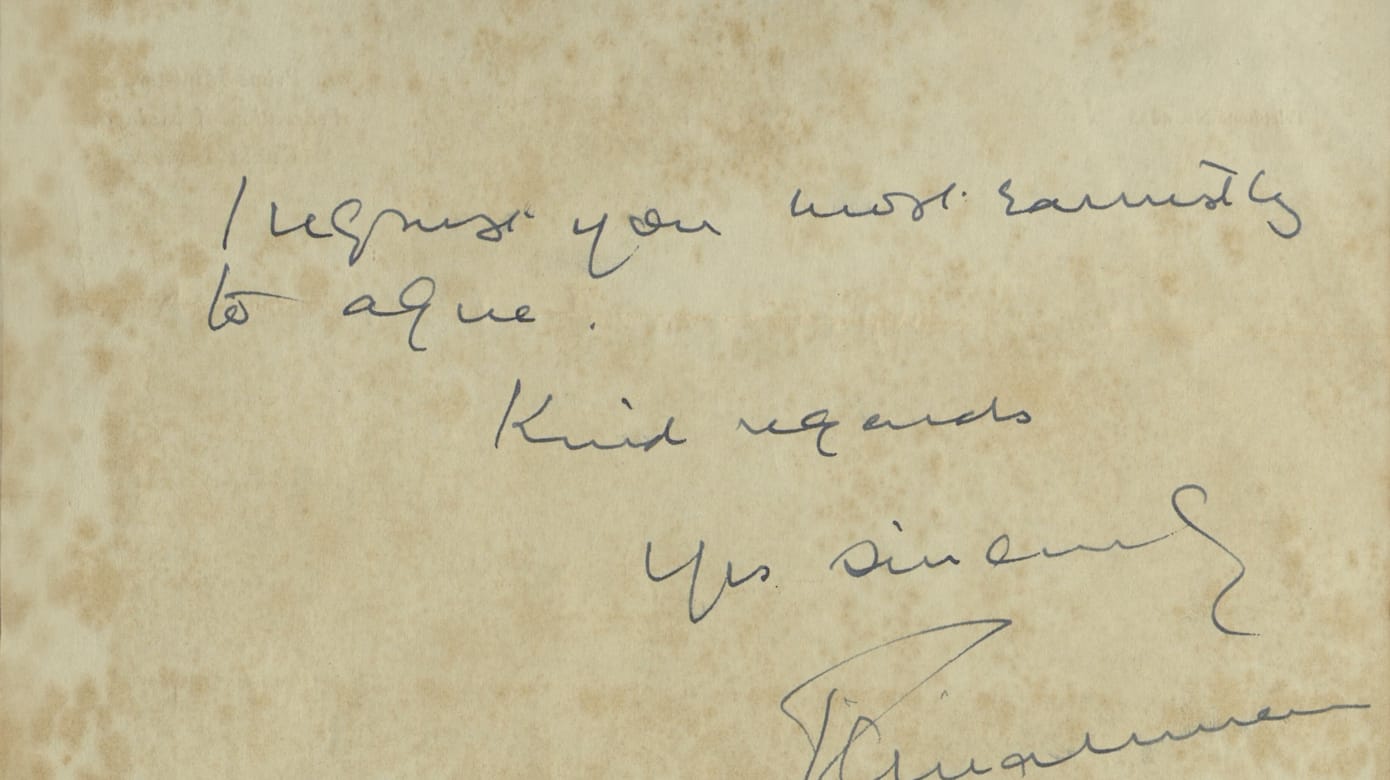 I request you most earnestly
to agree.
Kind regards
Yrs sincerely